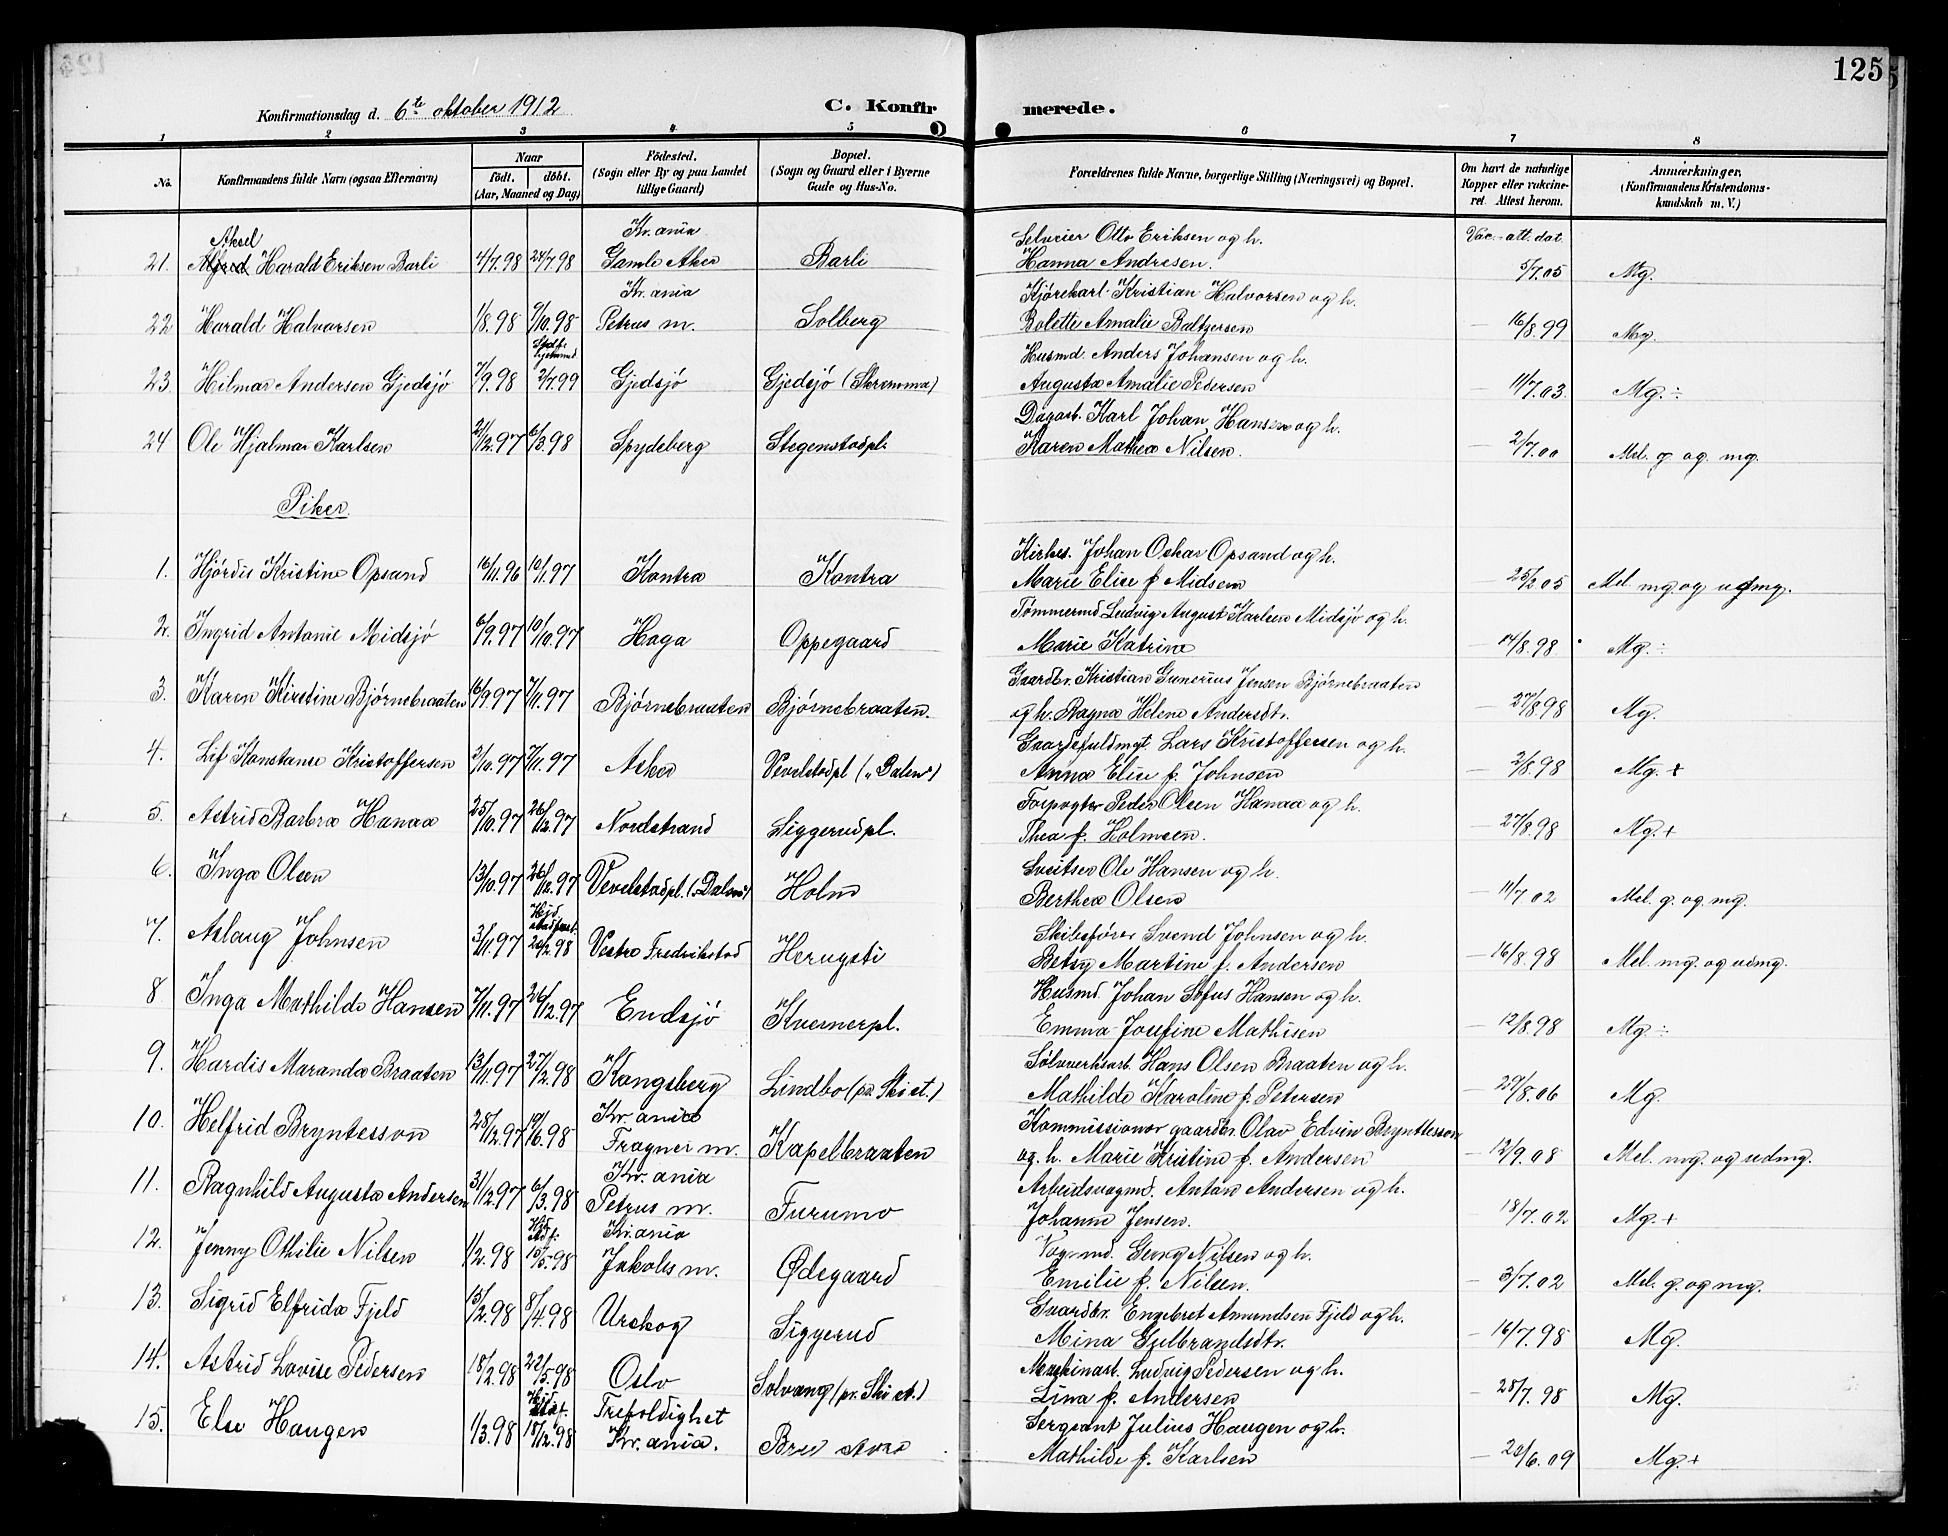 125
Konfirmationsdag d. 6te oktober 1912
C. Konfirmerede.
1 2 3 4 5 6 7 8
No. Konfirmandens fulde Navn (ogsaa Efternavn) Naar födt. döbt. (Aar, Maaned og Dag) Födested. (Sogn eller By og paa Landet tillige Gaard) Bopæl. (Sogn og Gaard eller i Byerne Gade og Hus-No. Forældrenes fulde Navne, borgerlige Stilling (Næringsvei) og Bopæl. Om havt de naturlige Kopper eller vakcineret. Attest herom. Anmærkninger, (Konfirmandens Kristendomskundskab m. V.)
Aksel Kr.ania Selveier Otto Eriksen og h. Vac.-att. dat.
21. Alfred Harald Eriksen Barli 4/7.98 24/7.98 Gamle Aker Barli Hanna Andresen. 5/7.05 Mg.
Kr.ania Kjørekarl Kristian Halvorsen og h.
22 Harald Halvorsen 1/8.98 9/10.98 Petrus m. Solberg Bolette Amalie Baltzersen — 16/8.99 Mg.
Husmd. Anders Johansen og h.
23. Hilmar Andersen Gjedsjø 7/9.98 2/7.99 Gjedsjø Gjedsjø (Skramma) Augusta Amalie Pedersen — 11/7.03. Mg. ÷
Dagarb. Karl Johan Hansen og h.
24 Ole Hjalmar Karlsen 21/12.97 6/3.98 Spydeberg Stegenstadpl. Karen Mathea Nilsen. — 2/7.00 Mel. g og. mg.
Piker.
Kirkes. Johan Oskar Opsand og h.
1. Hjørdis Kristine Opsand 16/11.96 10/1.97 Kontra Kontra Marie Elise f. Midsem — 25/2.05 Mel. mg. og udmg.
Tømmermd Ludvig August Karlsen Midsjø og h.
2. Ingrid Antonie Midsjø 6/9.97 10/10.97 Haga Oppegaard Marie Katrine — 14/8.98 Mg. ÷
Gaardbr. Kristian Gunerius Jensen Bjørnebraaten
3. Karen Kirstine Bjørnebraaten 16/9.97 7/11.97 Bjørnebraaten Bjørnebraaten. og h. Ragna Helene Andersdtr. — 27/8.98 Mg.
Gaardsfuldmgt. Lars Kristoffersen og h.
4. Lif Konstanse Kristoffersen 2/10.97 7/11.97 Asker Vevelstadpl („Dalen“) Anna Elise f. Johnsen — 2/8.98 Mg. +
Forpagter Peder Olsen Hanaa og h.
5. Astrid Barbra Hanaa 25/10.97 26/12.97 Nordstrand Siggerudpl. Thea f. Holmsen. — 27/8.98 Mg. +
Sveitser Ole Hansen og h.
6. Inga Olsen 13/10.97 26/12.97 Vevelstadpl. („Dalen“) Holm Berthea Olsen — 11/7 02 Mel. g. og. mg.
Skibsfører Svend Johnsen og h.
7. Aslaug Johnsen 3/11.97 20/2.98 Vestre Fredrikstad Herugsti Betsy Martine f. Andersen — 16/8.98 Mel. mg. og udmg.
Husmd. Johan Sofus Hansen og h.
8 Inga Mathilde Hansen 7/11.97 26/12.97 Endsjø Kvernerpl. Emma Josefine Mathisen — 12/8.98 Mg. ÷
Sølvverksarb. Hans Olsen Braaten og h.
9. Hardis Maranda Braaten 13/11.97 27/2.98 Kongsberg Lindbo (pr. Ski st.) Mathilde Karoline f. Petersen — 29/8.06 Mg.
Kr.ania Kommissionær gaardbr. Olav Edvin Bryntesson
10. Helfrid Bryntesson 28/12.97 19/6.98 Fragner m. Kapelbraaten og. h. Marie Kristine f. Andersen — 12/9.08 Mel. mg. og udmg.
Kr.ania Arbeidsvogmd. Anton Andersen og h.
11. Ragnhild Augusta Andersen 31/12.97 6/3.98 Petrus m. Furumo Johanne Jensen. — 18/7.02 Mg. +
Kr.ania Vogmd. Georg Nilsen og h.
12. Jenny Othilie Nilsen 1/2.98 15/5.98 Jakobs m. Ødegaard Emilie f. Nilsen. — 3/7.02 Mel. g. og mg.
Gaardbr. Engebret Amundsen Fjeld og h.
13. Sigrid Elfrida Fjeld 15/2.98 8/4.98 Urskog Siggerud Mina Gulbrandsdtr. — 16/7.98 Mg.
Maskinarb. Ludvig Pedersen og h.
14. Astrid Lovise Pedersen 18/2.98 22/5.98 Oslo Solvang (pr. Ski st.) Lina f. Andersen — 28/7.98 Mg.
Trefoldighet Sergeant Julius Haugen og h.
15. Else Haugen 1/3.98 18/12.98 Kr.ania. Bru store Mathilde f. Karlsen — 20/6.09 Mg. +